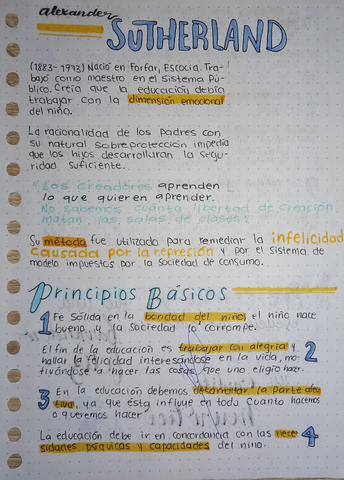 alexander
SUTHERLAND
(1883-1973) Nació en Forfar, Escocia. Tra-
bajó como maestro en el Sistema Pú-
blico. Creía que la educación debía
trabajar con la dimensión emocional
del niño.
La racionalidad de los padres con
su natural sobreprotección impedía
que los hijos desarrollaran la segu-
ridad suficiente.
"Los Creadores aprenden
lo que quieren aprender.
No sabemos cuánta libertad de creación
matan las salas de clases"
Su método fue utilizado para remediar la infelicidad
causada por la represión y por el sistema de
modelo impuestos por la sociedad de consumo.
Principios Básicos
1 Fe Sólida en la bondad del niño, el niño nace
bueno y la Sociedad lo corrompe.
El fin de la educación es trabajar con alegría y 2
hallar la felicidad interesándose en la vida, mo-
tivándose a hacer las cosas que uno eligió hacer.
3 En la educación debemos desarrollar la parte afec
tiva, ya que ésta influye en todo cuanto hacemos
o queremos hacer
La educación debe ir en concordancia con las nece 4
sidades psíquicas y capacidades del niño.